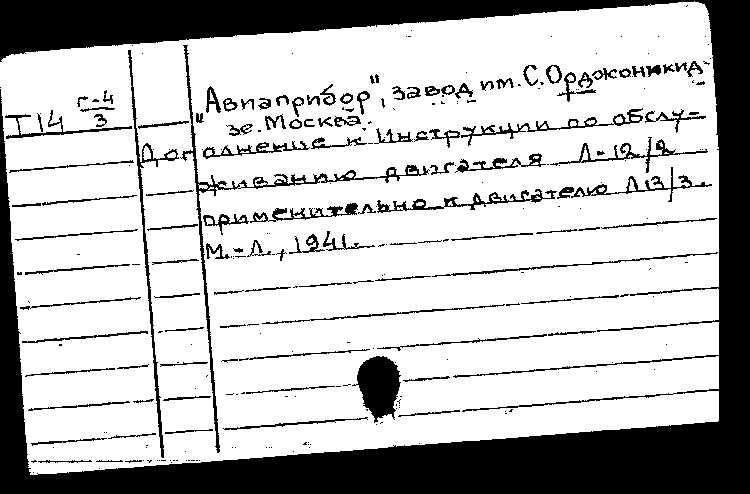 "Авиаприбор", завод им. С. Орджоникид-
зе. Москва.
Т 14 г-4/3
Дополнение к Инструкции по обслу-
живанию двигателя Л-12/2
применительно к двигателю Л 13/3.
М.-Л., 1941.